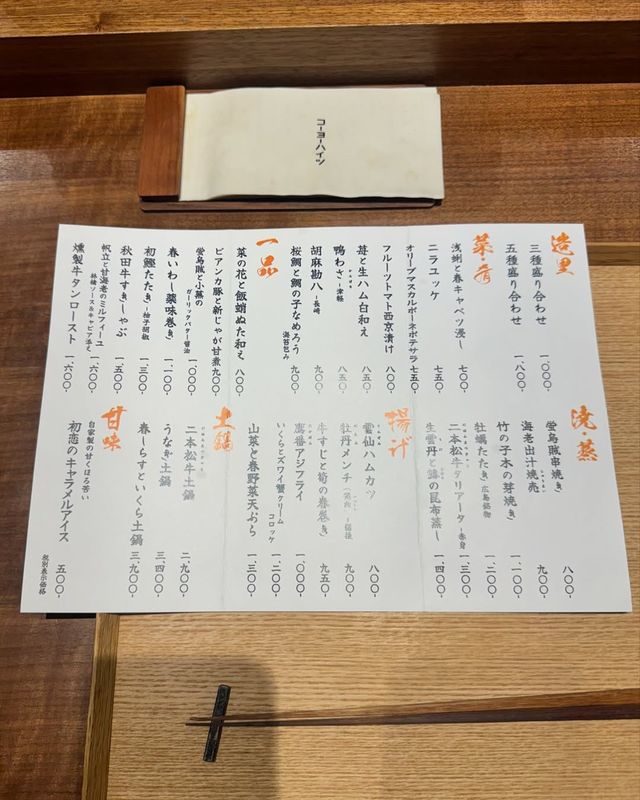 コーヨーハイツ
造里
三種盛り合わせ 一、〇〇〇-
五種盛り合わせ 一、八〇〇-
菜・肴
浅蜊と春キャベツ浸し 七〇〇-
ニラユッケ 七五〇-
オリーブマスカルポーネポテサラ 七五〇-
フルーツトマト西京漬け 八〇〇-
苺と生ハム白和え 八五〇-
鴨わさ-津軽 八五〇-
胡麻勘八-長崎 九〇〇-
桜鯛と鯛の子なめろう
海苔包み 九〇〇-
一品
菜の花と飯蛸ぬた和え 八〇〇-
ビアンカ豚と新じゃが甘煮 九〇〇-
蛍烏賊と小蕪の
ガーリックバター醤油 一、〇〇〇-
春いわし薬味巻き 一、〇〇〇-
初鰹たたき-柚子胡椒 一、三〇〇-
秋田牛すきしゃぶ 一、五〇〇-
帆立と甘海老のミルフィーユ
林檎ソース&キャビア添え 一、六〇〇-
燻製牛タンロースト 一、六〇〇-
焼・蒸
蛍烏賊串焼き 八〇〇-
海老出汁焼売 九〇〇-
竹の子木の芽焼き 一、一〇〇-
牡蠣たたき 広島 一、二〇〇-
二本松牛タリアータ-赤身 一、三〇〇-
生雲丹と の昆布蒸し 一、四〇〇-
揚げ
雲仙ハムカツ 八〇〇-
牡丹メンチ 九〇〇-
牛すじと筍の春巻き 九五〇-
萬番アジフライ 一、〇〇〇-
いくらとズワイ蟹クリーム
コロッケ 一、二〇〇-
山菜と春野菜天ぷら 一、三〇〇-
土鍋
二本松牛土鍋 二、九〇〇-
うなぎ土鍋 三、四〇〇-
春しらすといくら土鍋 三、九〇〇-
甘味
自家製の甘くほろ苦い
初恋のキャラメルアイス 五〇〇-
税別表示価格